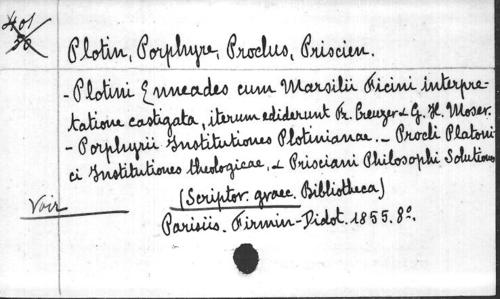 401
50
Plotin, Porphyre, Proclus, Priscien.
- Plotini Enneades cum Marsilii Ficini interpre-
tatione castigata, iterum ediderunt Fr. Creuzer & G. H. Moser.
- Porphyrii Institutiones Plotinianae. - Procli Platoni
ci Institutiones theologicae. & Prisciani Philosophi Solutiones
Voir (Scriptor. graec. Bibliotheca)
Parisiis. Firmin-Didot. 1855. 8º.